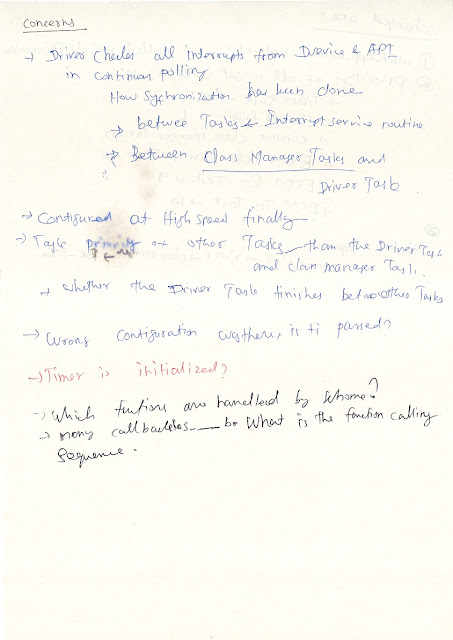 Concerns
→ Driver Checks all interrupts from Device & API
in continuous polling
How Sychronization has been done
→ betwee Tasks & Interrupt service routine
→ Between Class Manager Tasks and
Driver Task.
→ Configured at High speed finally
→ Task priority of other Tasks than the Driver Task
and class manager Task.
→ whether the Driver Task finishes before other Tasks
→ Wrong configuration was there, is it passed?
→ Timer is initialized?
→ Which functions are handled by whome?
→ many callbacks What is the function calling
Sequence.